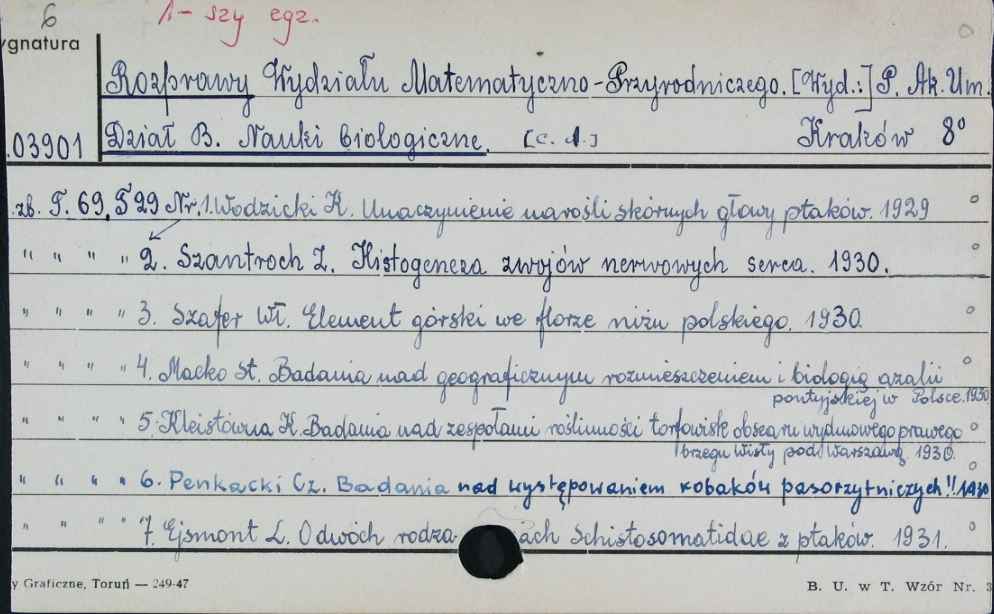 6 1-szy egz.
ygnatura
Rozprawy Wydziału Matematyczno-Przyrodniczego. [Wyd.:] P. Ak. Um.
03901 Dział B. Nauki biologiczne. [c. d.] Kraków 8°
zb. T. 69, Nr. 1. Wodzicki K. Unaczynienie narośli skórnych głowy ptaków. 1929
" " " " 2. Szantroch Z. Histogeneza zwojów nerwowych serca. 1930.
" " " " 3. Szafer Wł. Element górski we florze niżu polskiego. 1930.
" " " " 4. Macko St. Badania nad geograficznym rozmieszczeniem i biologią azalii
pontyjskiej w Polsce. 1930
" " " " 5. Kleistówna K. Badania nad zespołami roślinności torfowisk obszaru wydmowego prawego
brzegu Wisły pod Warszawą 1930.
" " " " 6. Penkacki Cz. Badania nad występowaniem robaków pasorzytniczych!! 1930
" " " " 7. Ejsmont L. O dwóch rodza ach Schistosomatidae z ptaków. 1931.
y Graficzne, Toruń — 249-47
B. U. w T. Wzór Nr. 3